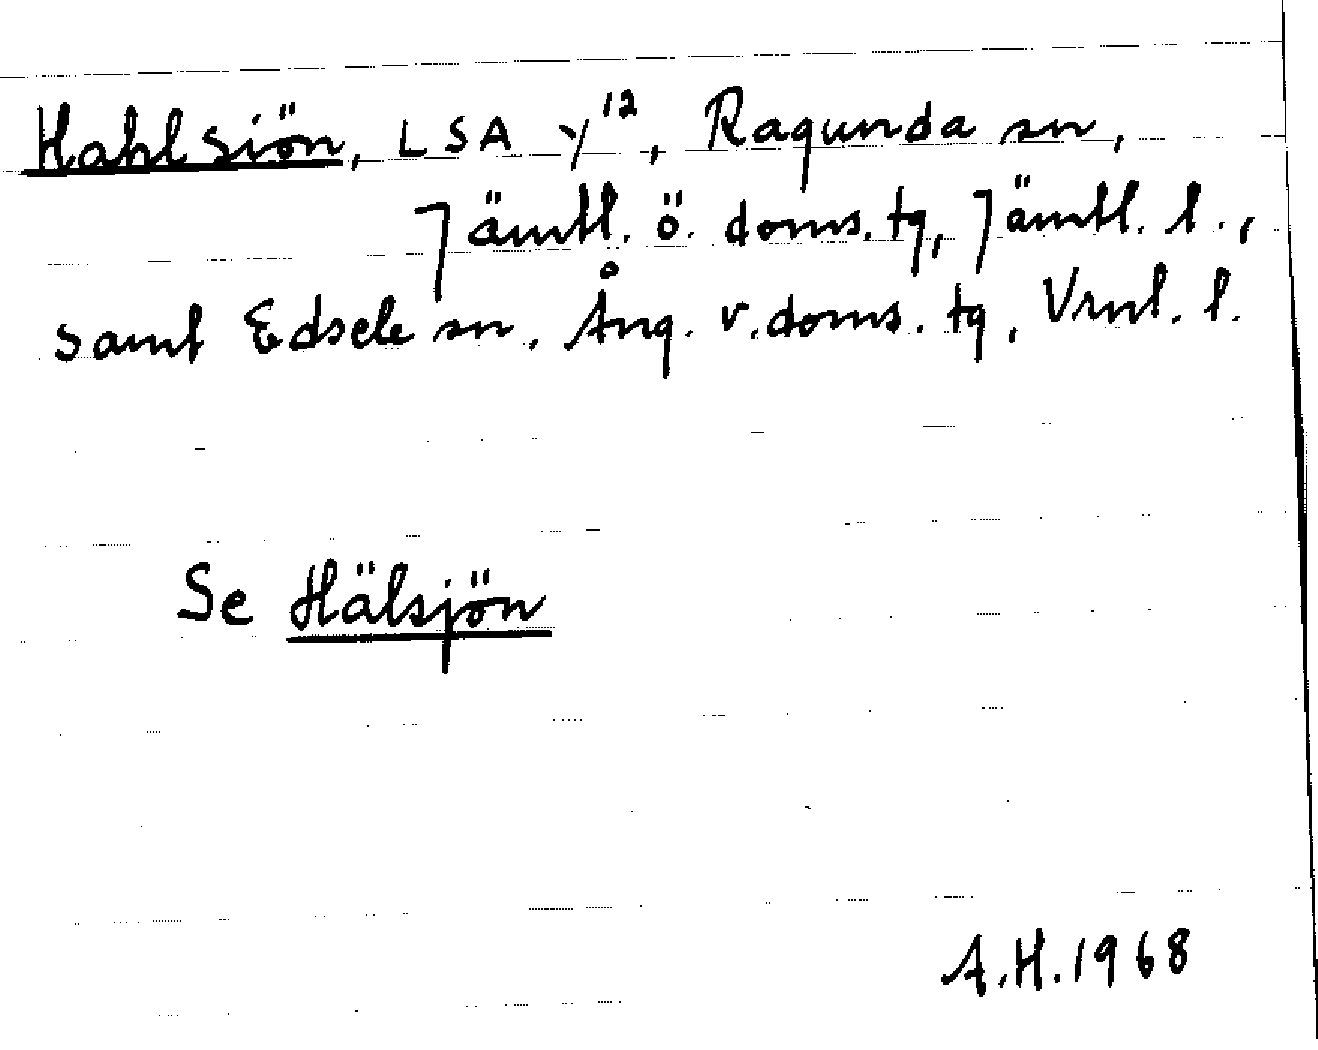 Hahlsiön, LSA Y¹², Ragunda sn,
Jämtl. ö. doms. tg, Jämtl. l.,
samt Edsele sn, Ång. v. doms. tg, Vrnl. l.
Se Hälsjön
A.H. 1968